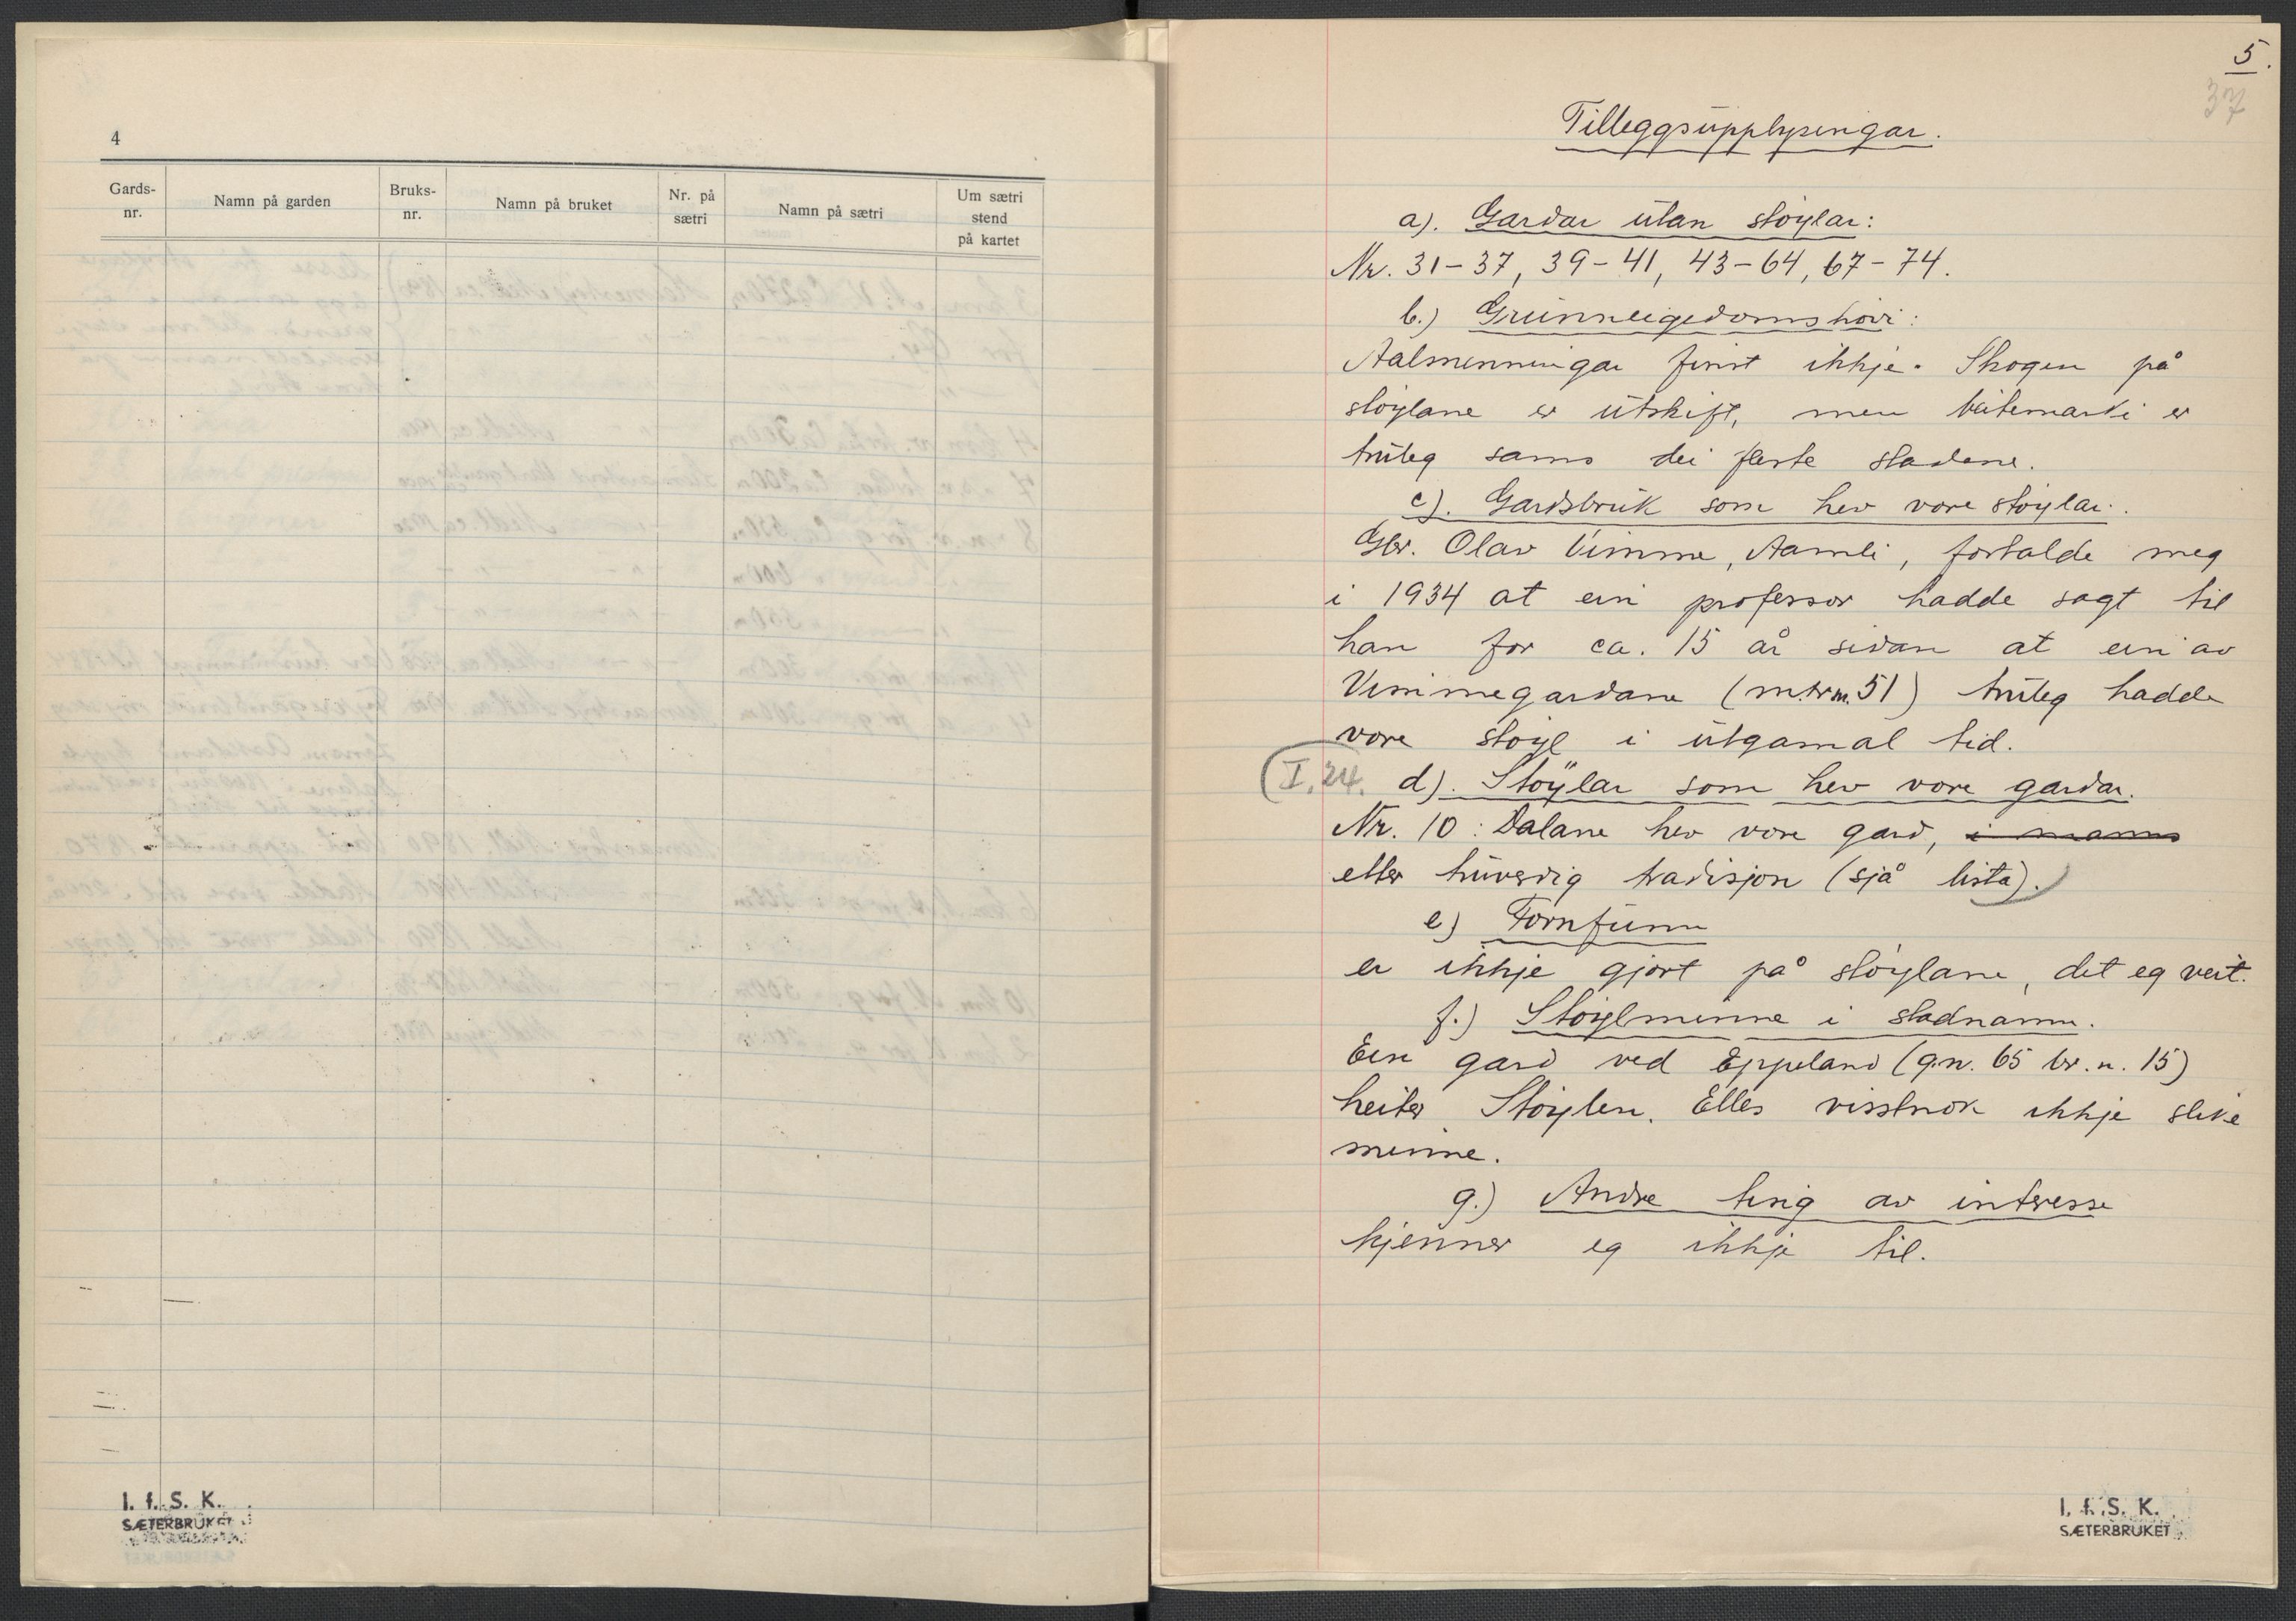 4
Gards-
nr.
Namn på garden
Bruks-
nr.
Namn på bruket
Nr. på
sætri
Namn på sætri
Um sætri
stend
på kartet
I. f. S. K.
SÆTERBRUKET
5.
37
Tilleggsupplysingar.
a). Gardar utan støylar:
Nr. 31-37, 39-41, 43-64, 67-74.
b.) Grunneigedomshøvi:
Aalmenningar finst ikkje. Skogen på
støylane er utskift, men beitemarki er
truleg sams dei fleste stadene.
c). Gardsbruk som hev vore støylar.
Gbr. Olav Vimme, Aamli, fortalde meg
i 1934 at ein professor hadde sagt til
han for ca. 15 år sidan at ein av
Vimmegardane (m.nrm. 51) truleg hadde
vore støyl i utgamal tid.
(I, 24. d). Støylar som hev vore gardar.
Nr. 10: Dalane hev vore gard, i manns
etter truverdig tradisjon (sjå lista).)
e) Fornfunn
er ikkje gjort på støylane, det eg veit.
f.) Støylminne i stadnamn.
Ein gard ved Eppeland (g.n. 65 br.n. 15)
heiter Støylen. Elles visstnok ikkje slike
minne.
g.) Andre ting av interesse
kjenner eg ikkje til.
I. f. S. K.
SÆTERBRUKET